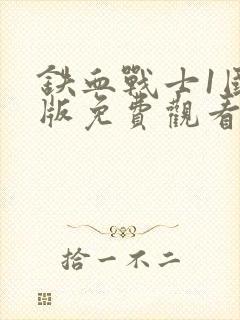 鉄血戰士1國
版免費觀看
拾一不二